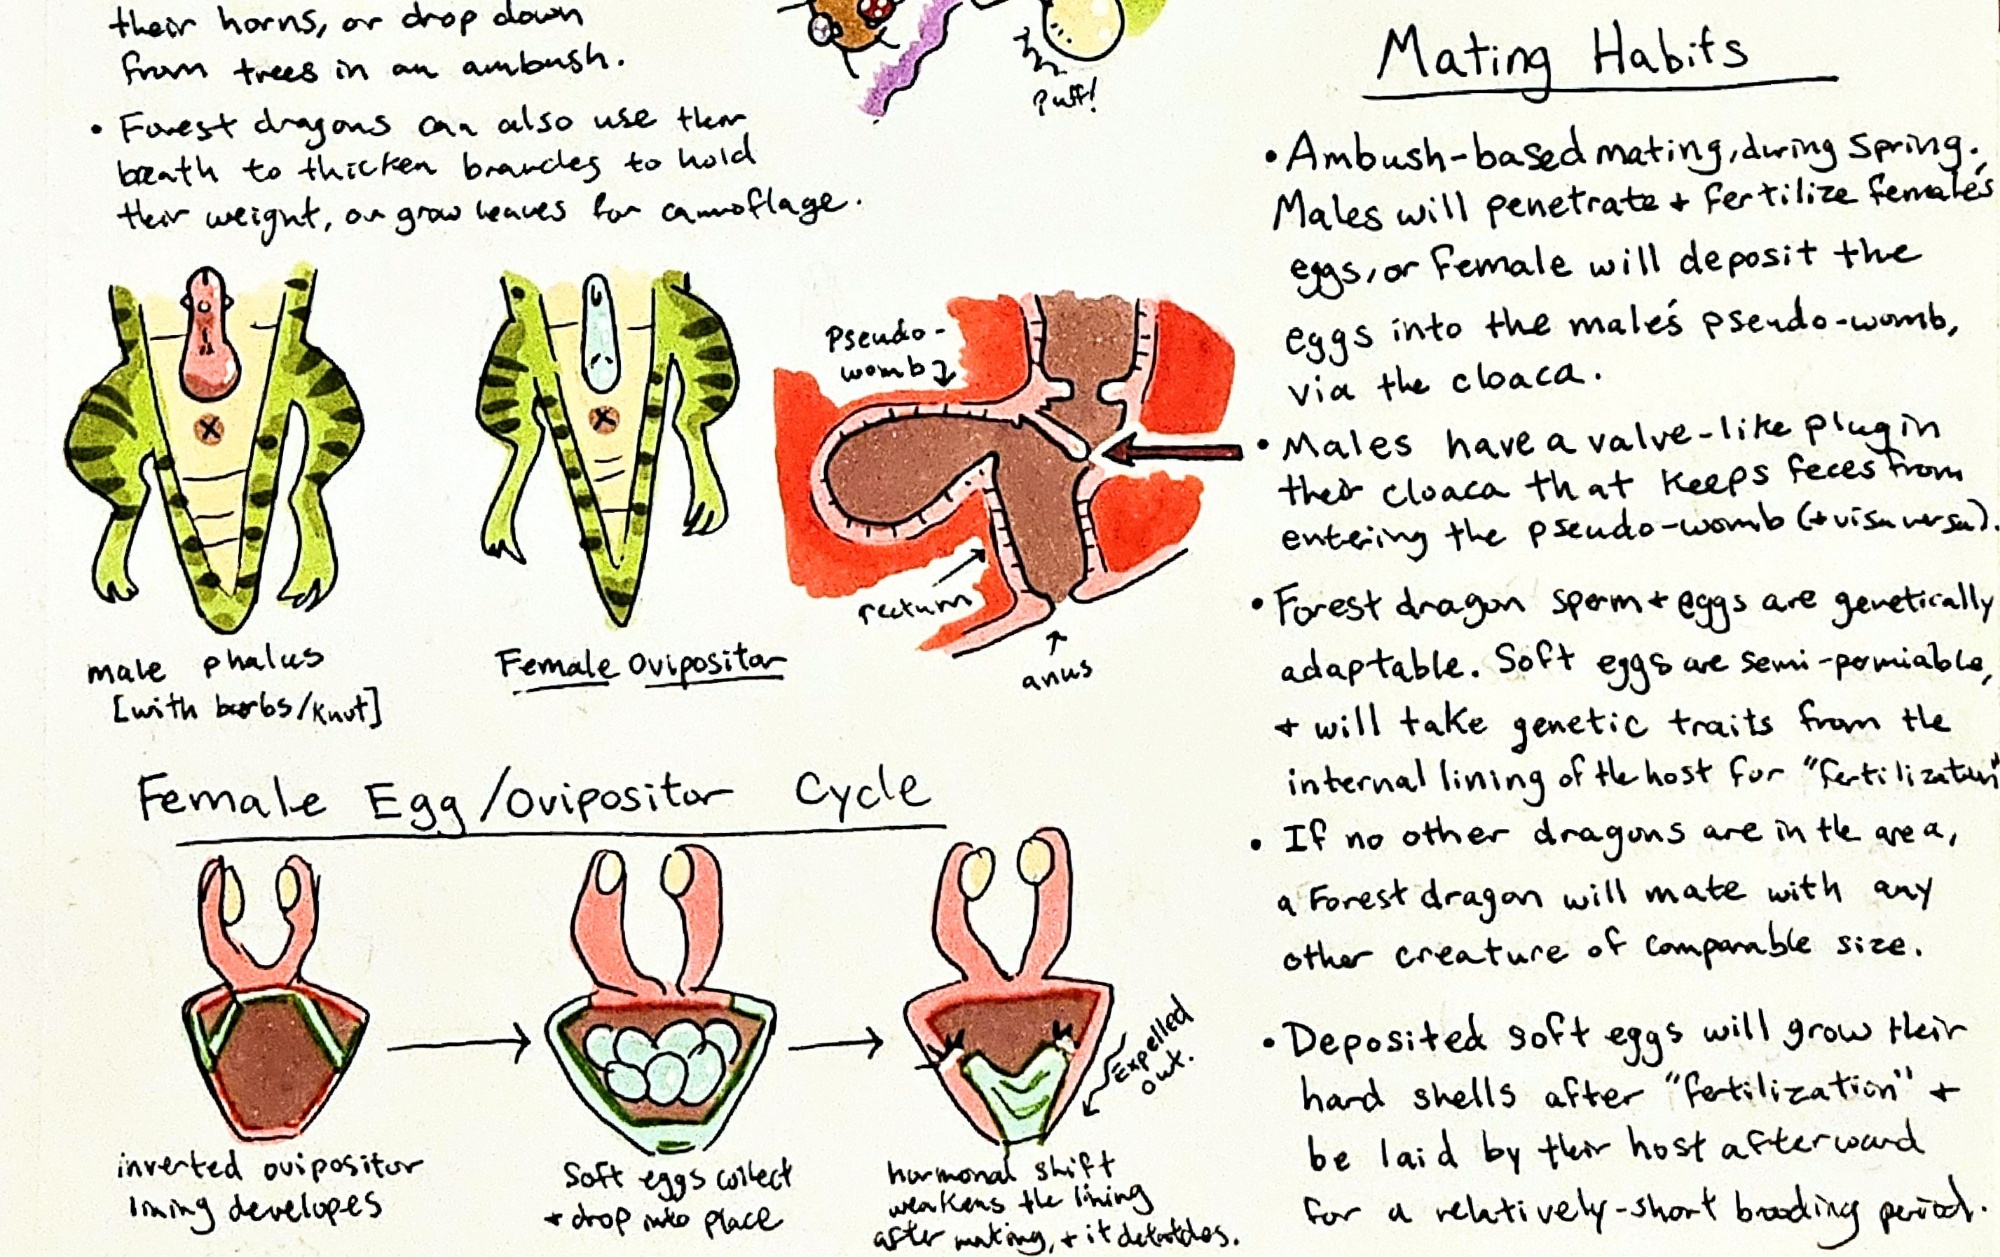 their horns, or drop down
from trees in an ambush.
• Forest dragons can also use their
breath to thicken branches to hold
their weight, or grow leaves for camoflage.
Puff!
male phalus
[with barbs/knot]
Female Ovipositor
Pseudo-
womb
rectum
anus
Female Egg/Ovipositor Cycle
inverted ovipositor
lining developes
Soft eggs collect
+ drop into place
Expelled
out.
hormonal shift
weakens the lining
after mating, + it detatches.
Mating Habits
• Ambush-based mating, during spring.
Males will penetrate + fertilize female's
eggs, or female will deposit the
eggs into the male's pseudo-womb,
via the cloaca.
• Males have a valve-like plug in
their cloaca that keeps feces from
entering the pseudo-womb (+ visa versa).
• Forest dragon sperm + eggs are genetically
adaptable. Soft eggs are semi-permiable,
+ will take genetic traits from the
internal lining of the host for "fertilization"
• If no other dragons are in the area,
a Forest dragon will mate with any
other creature of comparable size.
• Deposited soft eggs will grow their
hard shells after "fertilization" +
be laid by their host afterward
for a relatively-short brooding period.